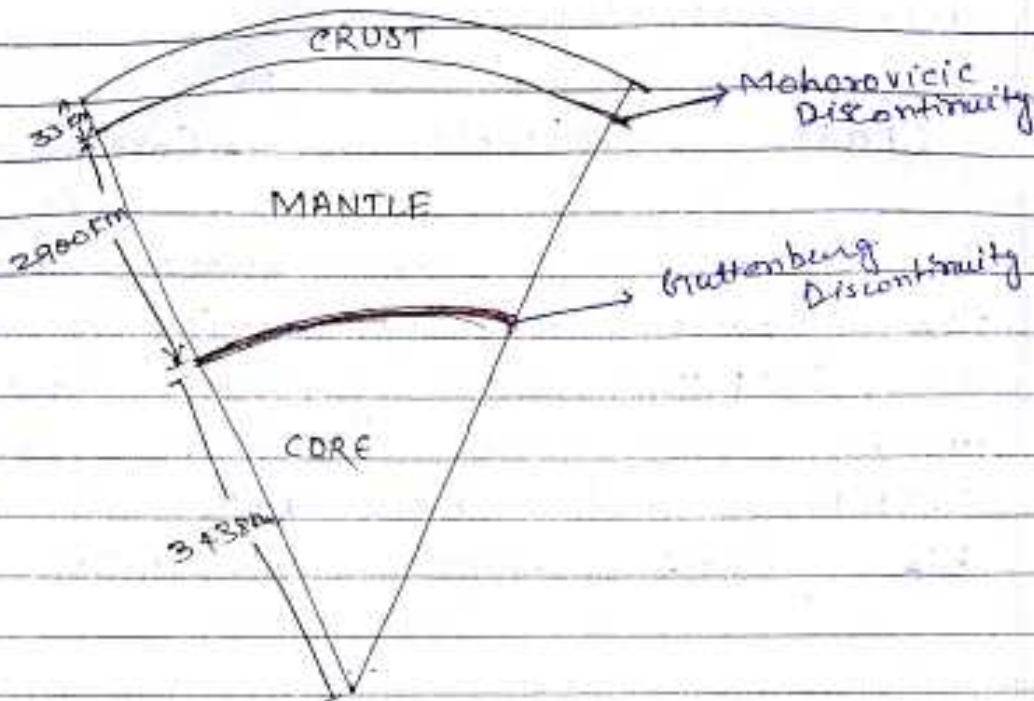 CRUST
Mohorovicic
Discontinuity
MANTLE
2900Km
Guttenburg
Discontinuity
CORE